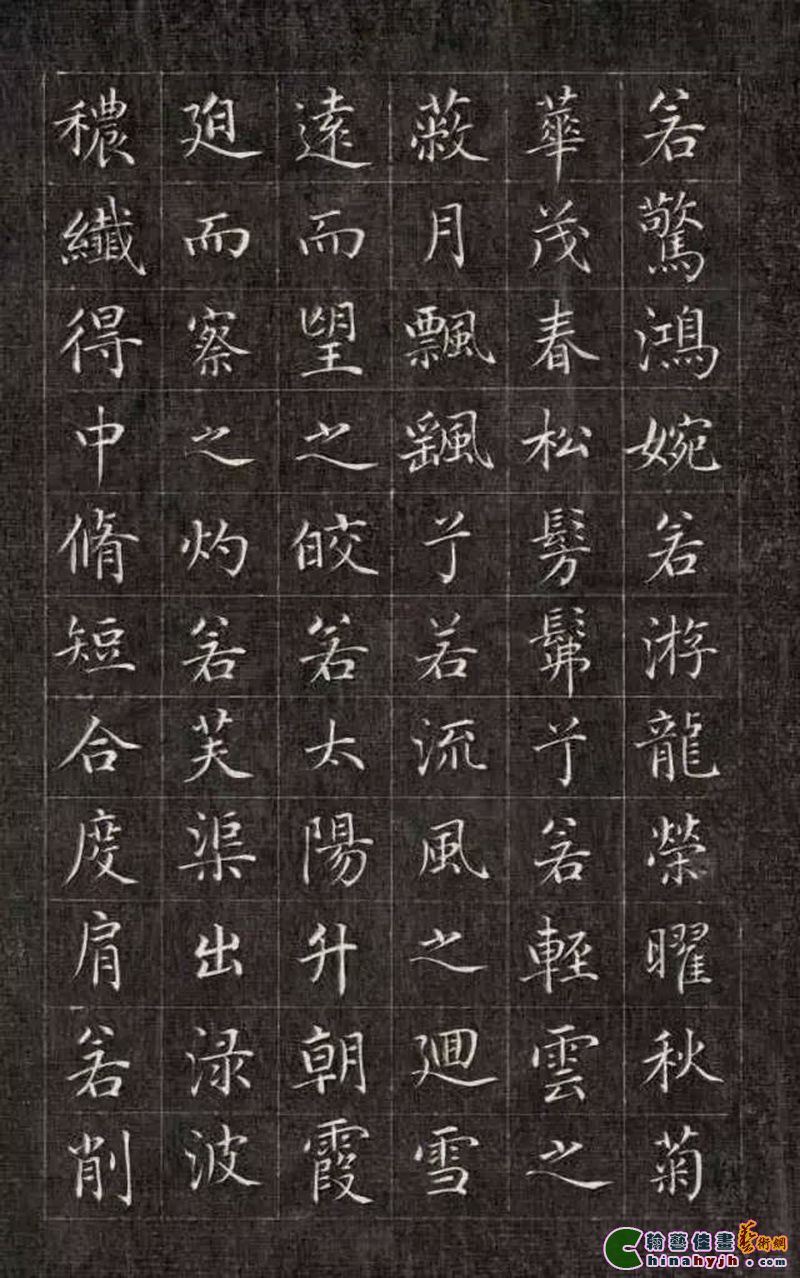 若驚鴻婉若游龍榮曜秋菊
華茂春松髣髴兮若輕雲之
蔽月飄颻兮若流風之迴雪
遠而望之皎若太陽升朝霞
迫而察之灼若芙渠出淥波
穠纖得中脩短合度肩若削
翰藝佳畫藝術網
hinahyjh.com